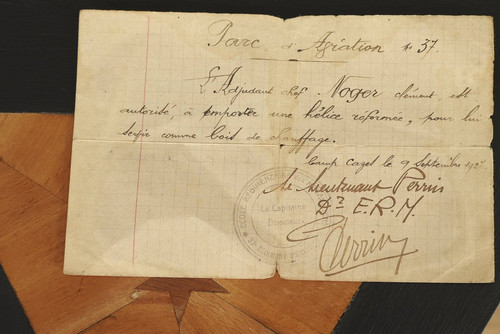 Parc d'Aviation n° 37.
L'Adjudant chef Noger Clément, est
autorisé, à emporter une hélice réformée, pour lui
servir comme bois de chauffage.
Camp Cazet le 9 Septembre
Le Lieutenant Perrin
Dr E.R.M.
Perrin
Le Capitaine